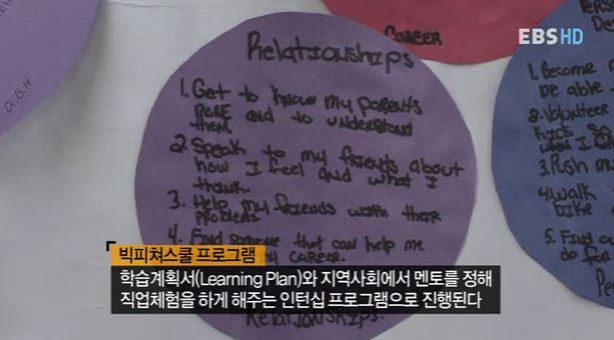 EBS HD
CAREER
Relationships
1. Get to know my parents
MORE and to understand
them
2. Speak to my friends about
how I feel and what I
think.
3. Help my friends with their
problems
4. Find someone that can help me
my CAREER.
Relationships.
a.B.H
1. Become
be able
2. Volunteer
3. Push
4. Walk
bike
5. Find
do for
빅피쳐스쿨 프로그램
학습계획서(Learning Plan)와 지역사회에서 멘토를 정해
직업체험을 하게 해주는 인턴십 프로그램으로 진행된다